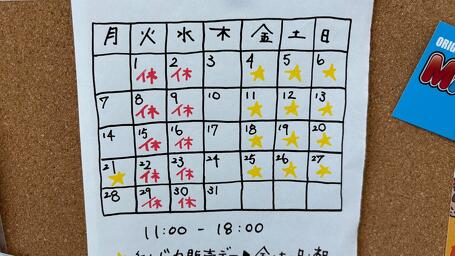 月 火 水 木 金 土 日
1 2 3 4 5 6
休 休
7 8 9 10 11 12 13
休 休
14 15 16 17 18 19 20
休 休
21 22 23 24 25 26 27
休 休
28 29 30 31
休 休
11:00 - 18:00
ORIG
M